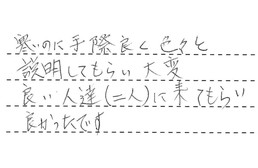 寒いのに手際良く色々と
説明してもらい大変
良い人達(二人)に来てもらい
良かったです